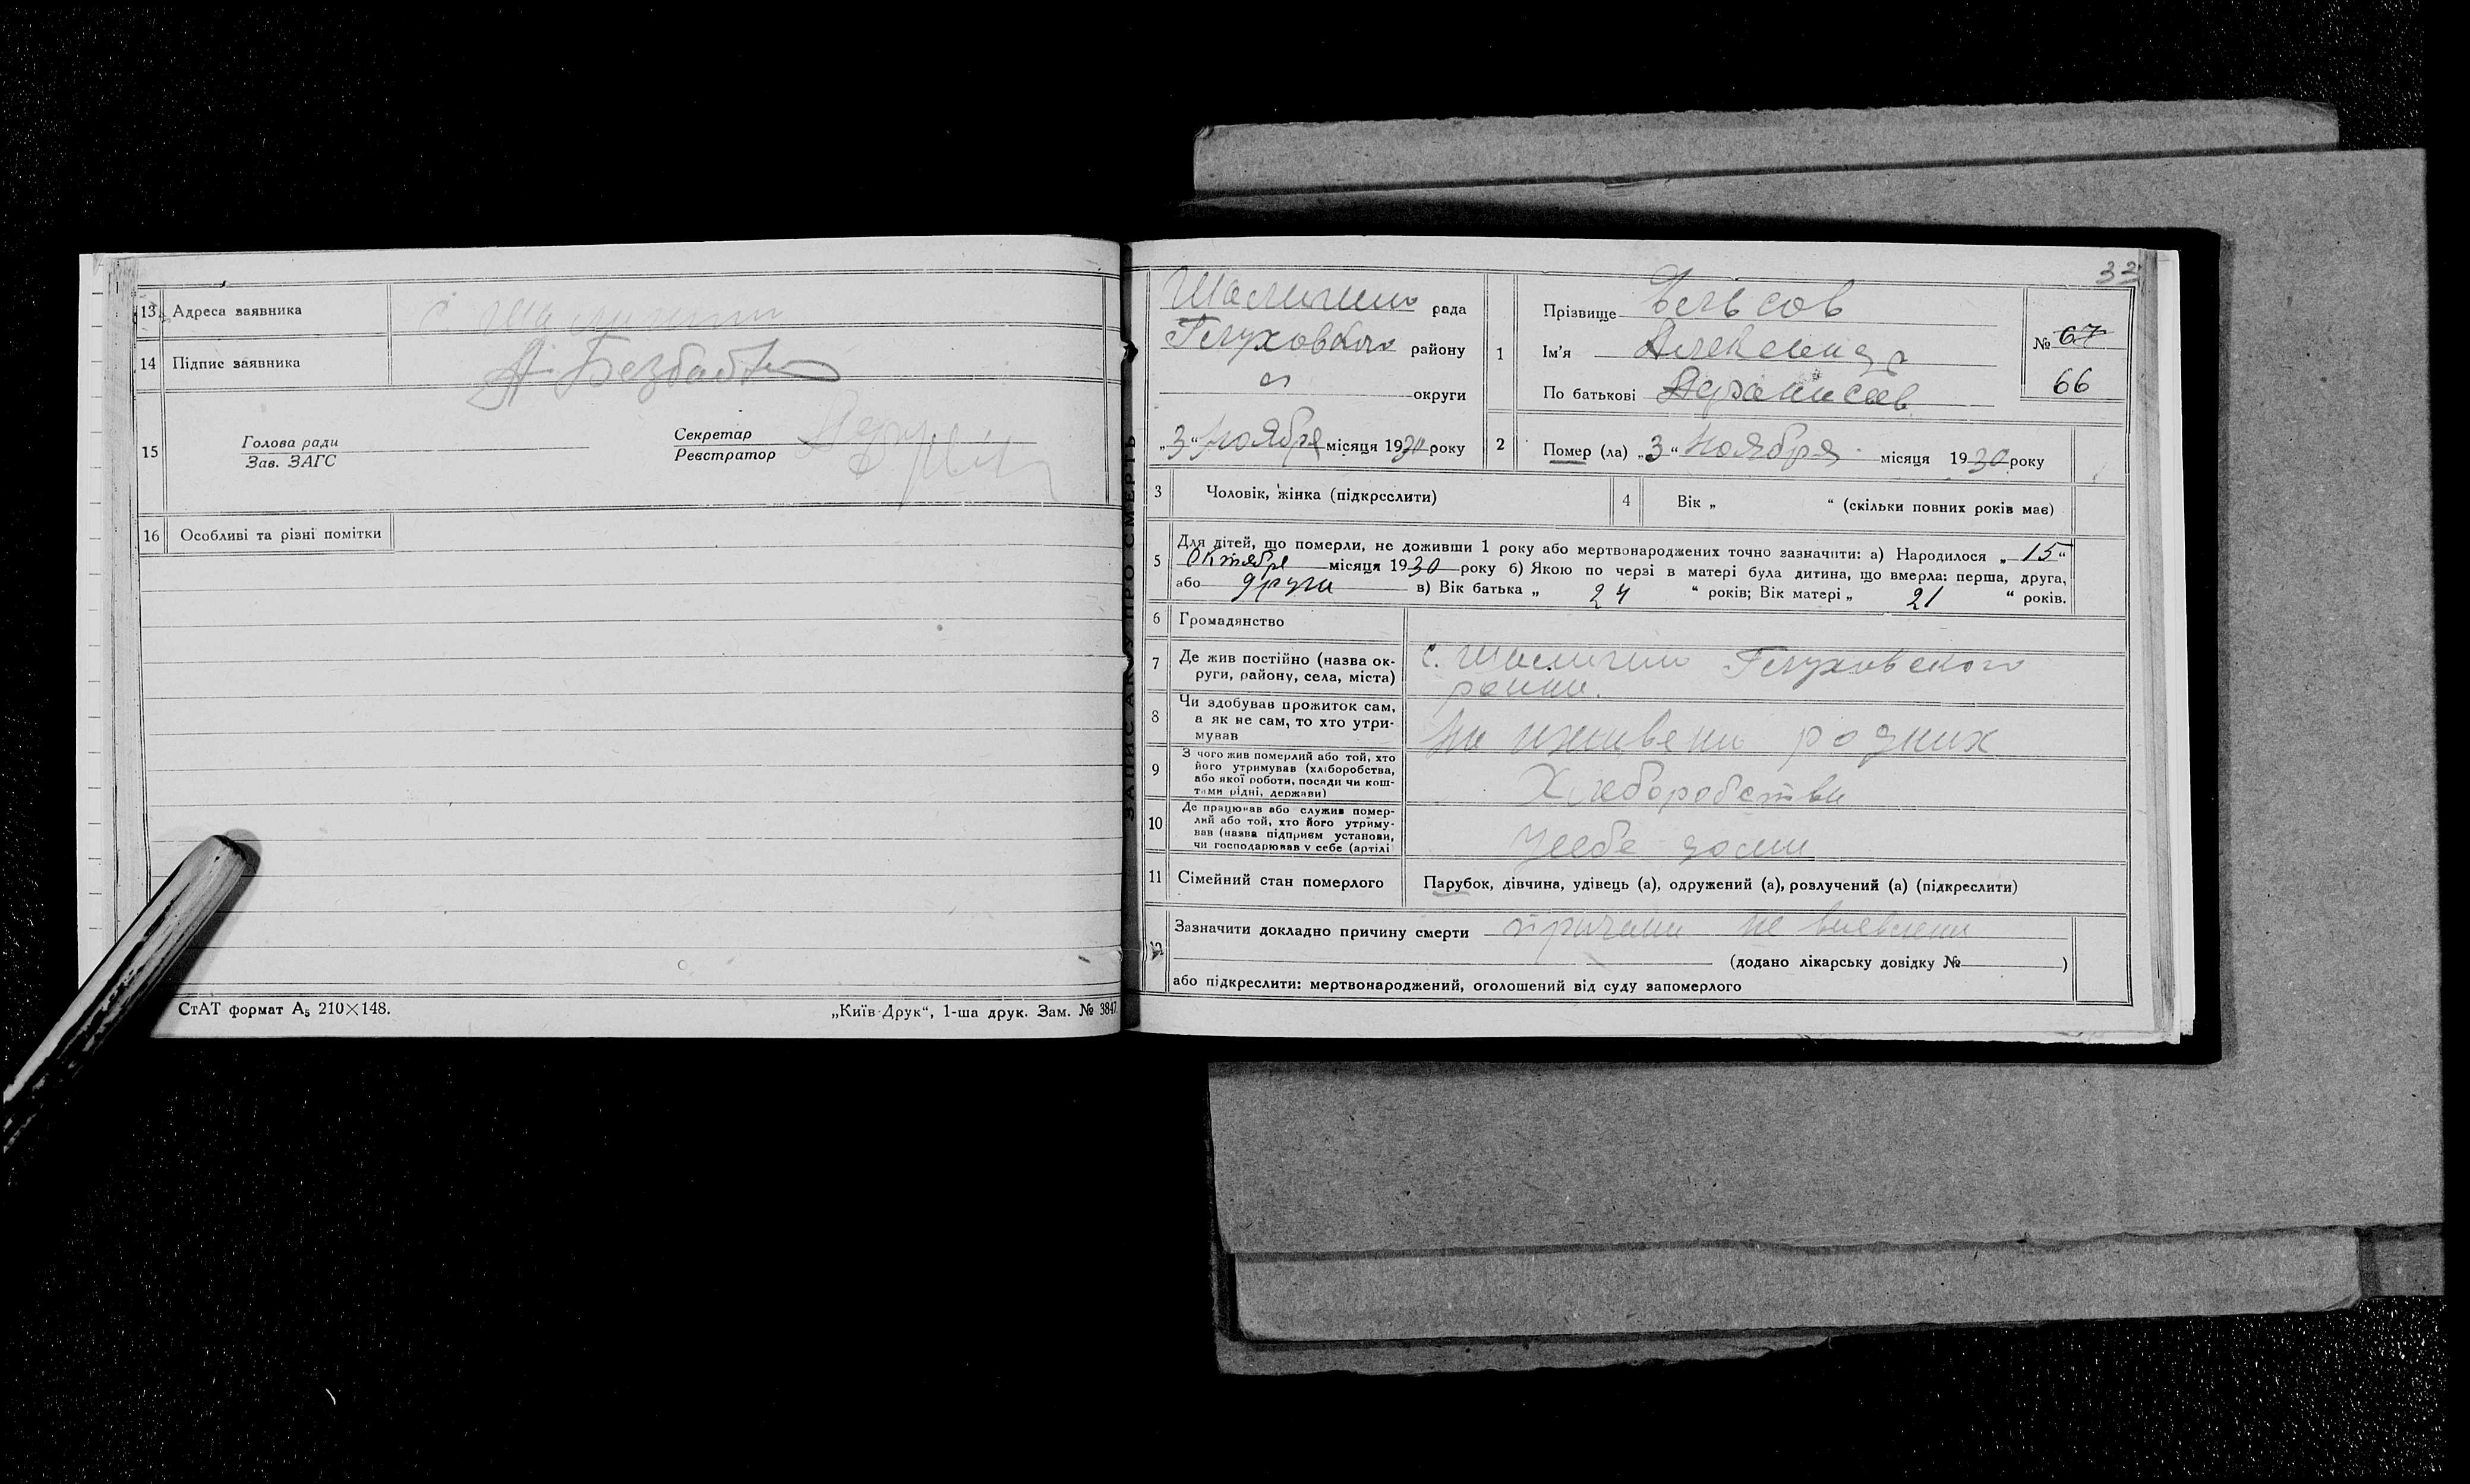 13 Адреса заявника с. Шалигино
14 Підпис заявника А Безбаб
15 Голова ради
Зав. ЗАГС
Секретар
Реєстратор
16 Особливі та різні помітки
СтАТ формат А₅ 210×148.
„Київ-Друк“, 1-ша друк. Зам. № 3847
ЗАПИС АКТУ ПРО СМЕРТЬ
33
Шалигино рада
Глуховского району
округи
„3“ ноября місяця 1930 року
1 Прізвище
Ім'я Александр
По батькові
№ 67
66
2 Помер (ла) „3“ Ноября місяця 1930 року
3 Чоловік, жінка (підкреслити)
4 Вік „ “ (скільки повних років має)
5 Для дітей, що померли, не доживши 1 року або мертвонароджених точно зазначити: а) Народилося „15“
Октября місяця 1930 року б) Якою по черзі в матері була дитина, що вмерла: перша, друга,
або друга в) Вік батька „ 24 “ років; Вік матері „ 21 “ років.
6 Громадянство
7 Де жив постійно (назва ок-
руги, району, села, міста)
с. Шалигино Глуховского
району.
8 Чи здобував прожиток сам,
а як не сам, то хто утри-
мував
на иждивени родних
9 З чого жив померлий або той, хто
його утримував (хліборобства,
або якої роботи, посади чи кош-
тами рідні, держави)
Хлеборобства
10 Де працював або служив помер-
лий або той, хто його утриму-
вав (назва підприєм установи,
чи господарював у себе (артілі
усебе дома
11 Сімейний стан померлого
Парубок, дівчина, удівець (а), одружений (а), розлучений (а) (підкреслити)
12 Зазначити докладно причину смерти причина не виявлена
(додано лікарську довідку № )
або підкреслити: мертвонароджений, оголошений від суду запомерлого